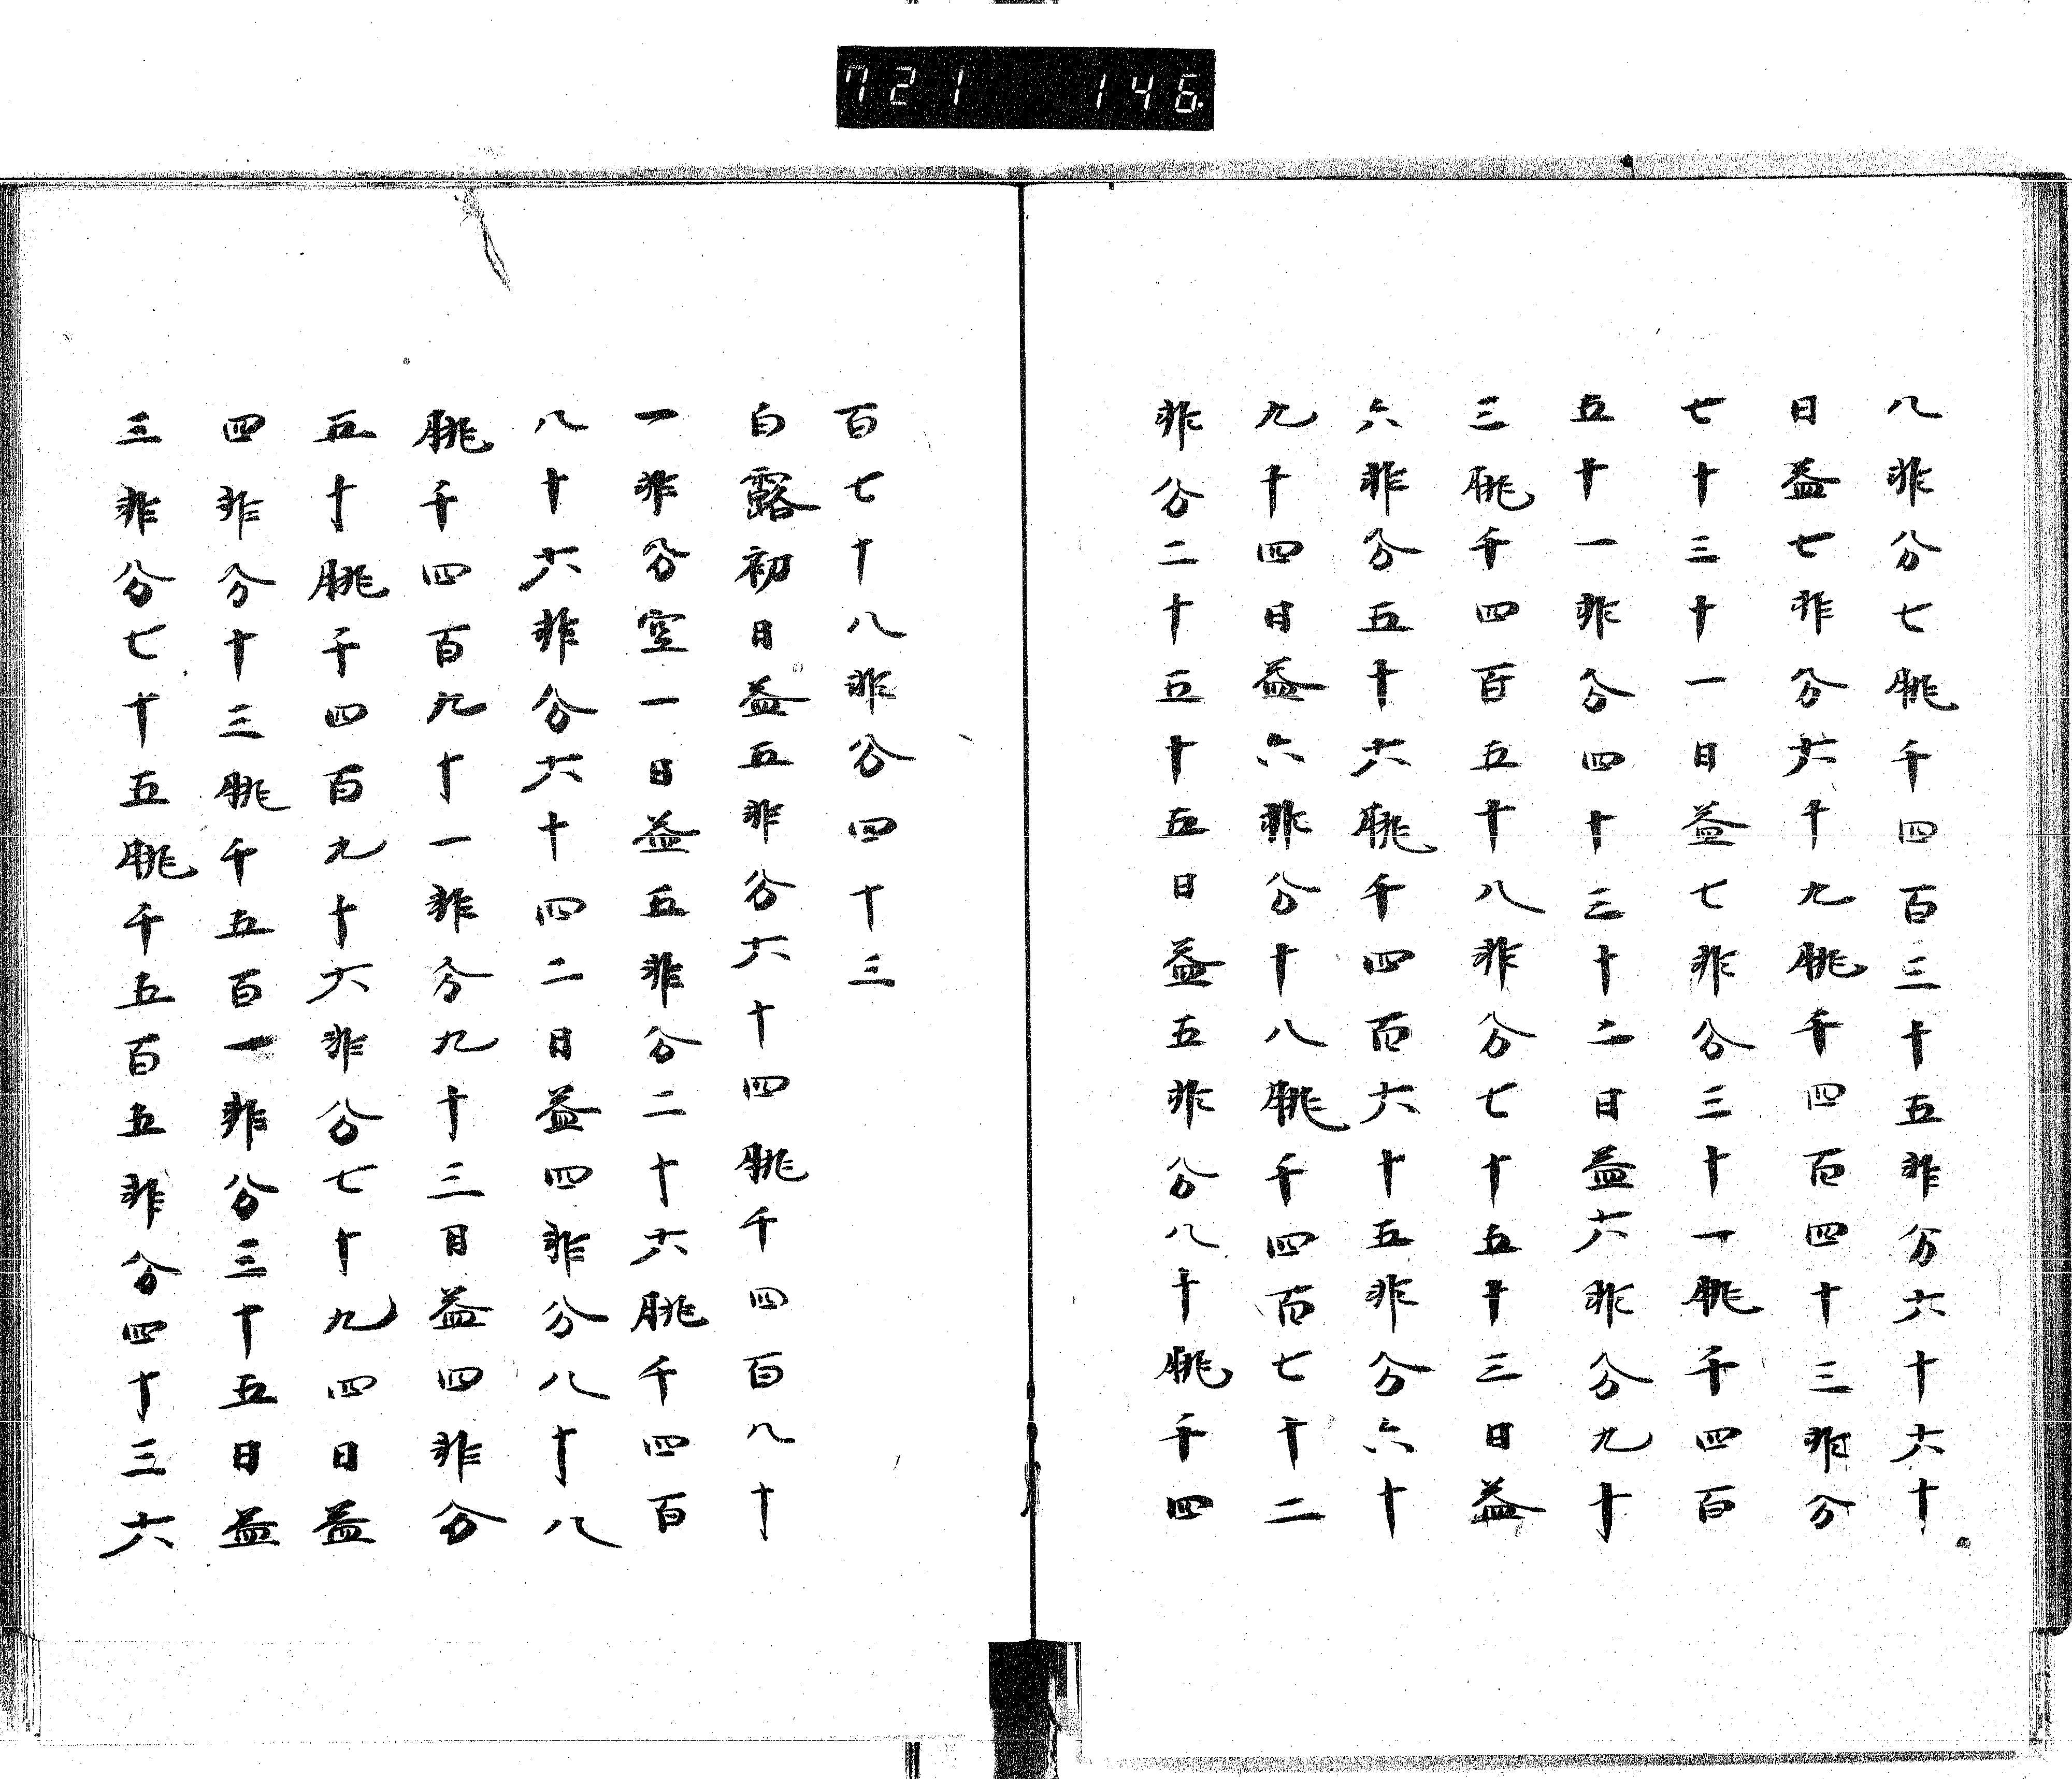 721 146.
八非分七朓千四百三十五非分六十六十
日益七非分六十九朓千四百四十三非分
七十三十一日益七非分三十一朓千四百
五十一非分四十三十二日益六非分九十
三朓千四百五十八非分七十五十三日益
六非分五十六朓千四百六十五非分六十
九十四日益六非分十八朓千四百七十二
非分二十五十五日益五非分八十朓千四
百七十八非分四十三
白露初日益五非分六十四朓千四百八十
一非分空一日益五非分二十六朓千四百
八十六非分六十四二日益四非分八十八
朓千四百九十一非分九十三日益四非分
五十朓千四百九十六非分七十九四日益
四非分十三朓千五百一非分三十五日益
三非分七十五朓千五百五非分四十三六